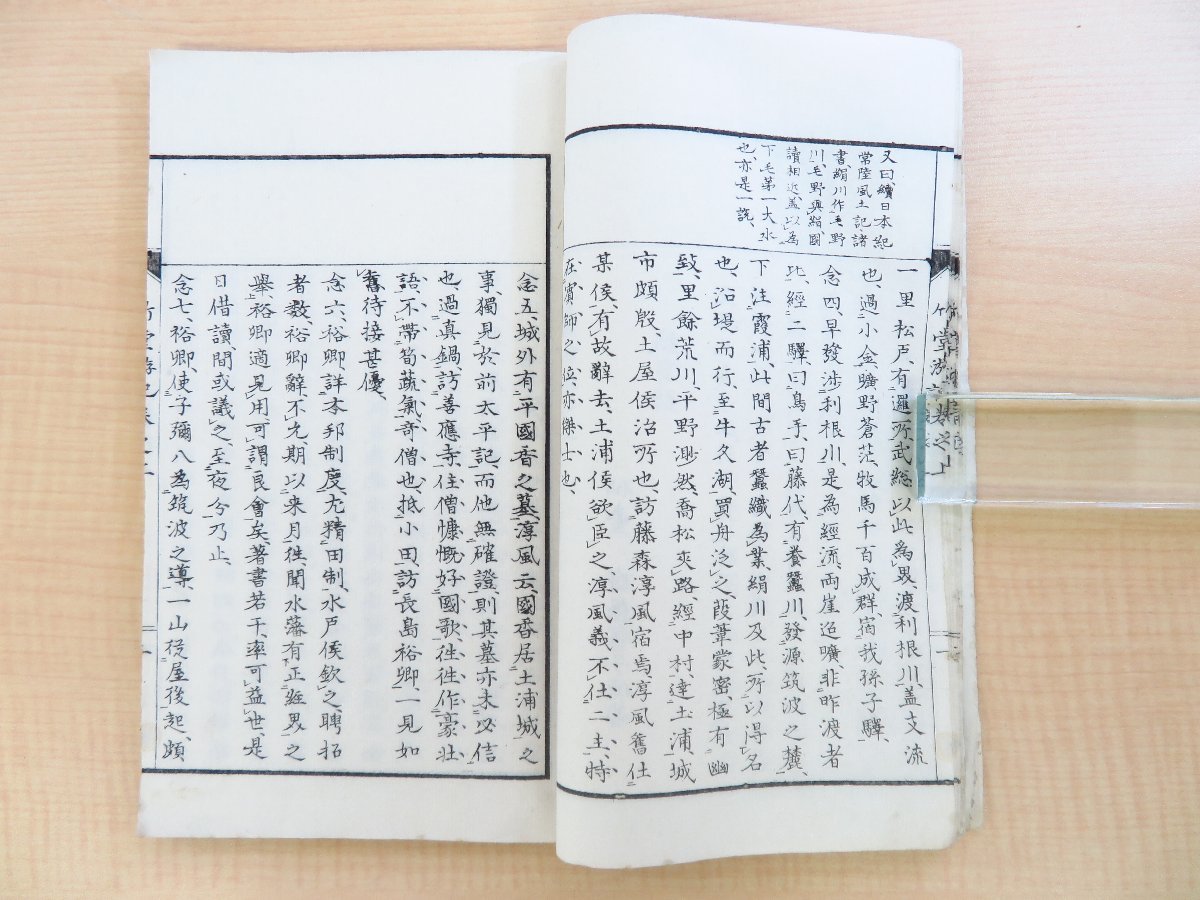 又曰、續日本紀
常陸風土記諸
書、絹川作毛野
川、毛野與絹、國
讀相近、蓋以為
下毛第一大水
也、亦是一說、
一里、松戶有邏所、武總以此為界、渡利根川、蓋支流
也、過小金、曠野蒼茫、牧馬千百成群、宿我孫子驛、
念四、早發涉利根川、是為經流、兩崖迢曠、非昨渡者
比、經二驛、曰鳥手、曰藤代、有養蠶川、發源筑波之麓、
下注霞浦、此間古者蠶織為業、絹川及此、所以得名
也、沿堤而行、至牛久湖、買舟泛之、葭葦蒙密、極有幽
致、里餘荒川、平野渺然、喬松夾路、經中村、達土浦城
市頗殷、土屋侯治所也、訪藤森淳風宿焉、淳風舊仕
某侯、有故辭去、土浦侯欲臣之、淳風義不仕二主、特
在賓師之位、亦傑士也、
念五、城外有平國香之墓、淳風云、國香居土浦城之
事、獨見於前太平記、而他無確證、則其墓亦未必信
也、過真鍋、訪善應寺、住僧慷慨好國歌、往往作豪壯
語、不帶筍蔬氣、奇僧也、抵小田、訪長島裕卿、一見如
舊、待接甚優、
念六、裕卿詳本邦制度、尤精田制、水戶侯欽之、聘招
者數、裕卿辭不允、期以來月往、聞水藩有正經界之
舉、裕卿適見用、可謂良會矣、著書若干、率可益世、是
日借讀、間或議之、至夜分乃止、
念七、裕卿使子彌八為筑波之導、一山從屋後起、頗